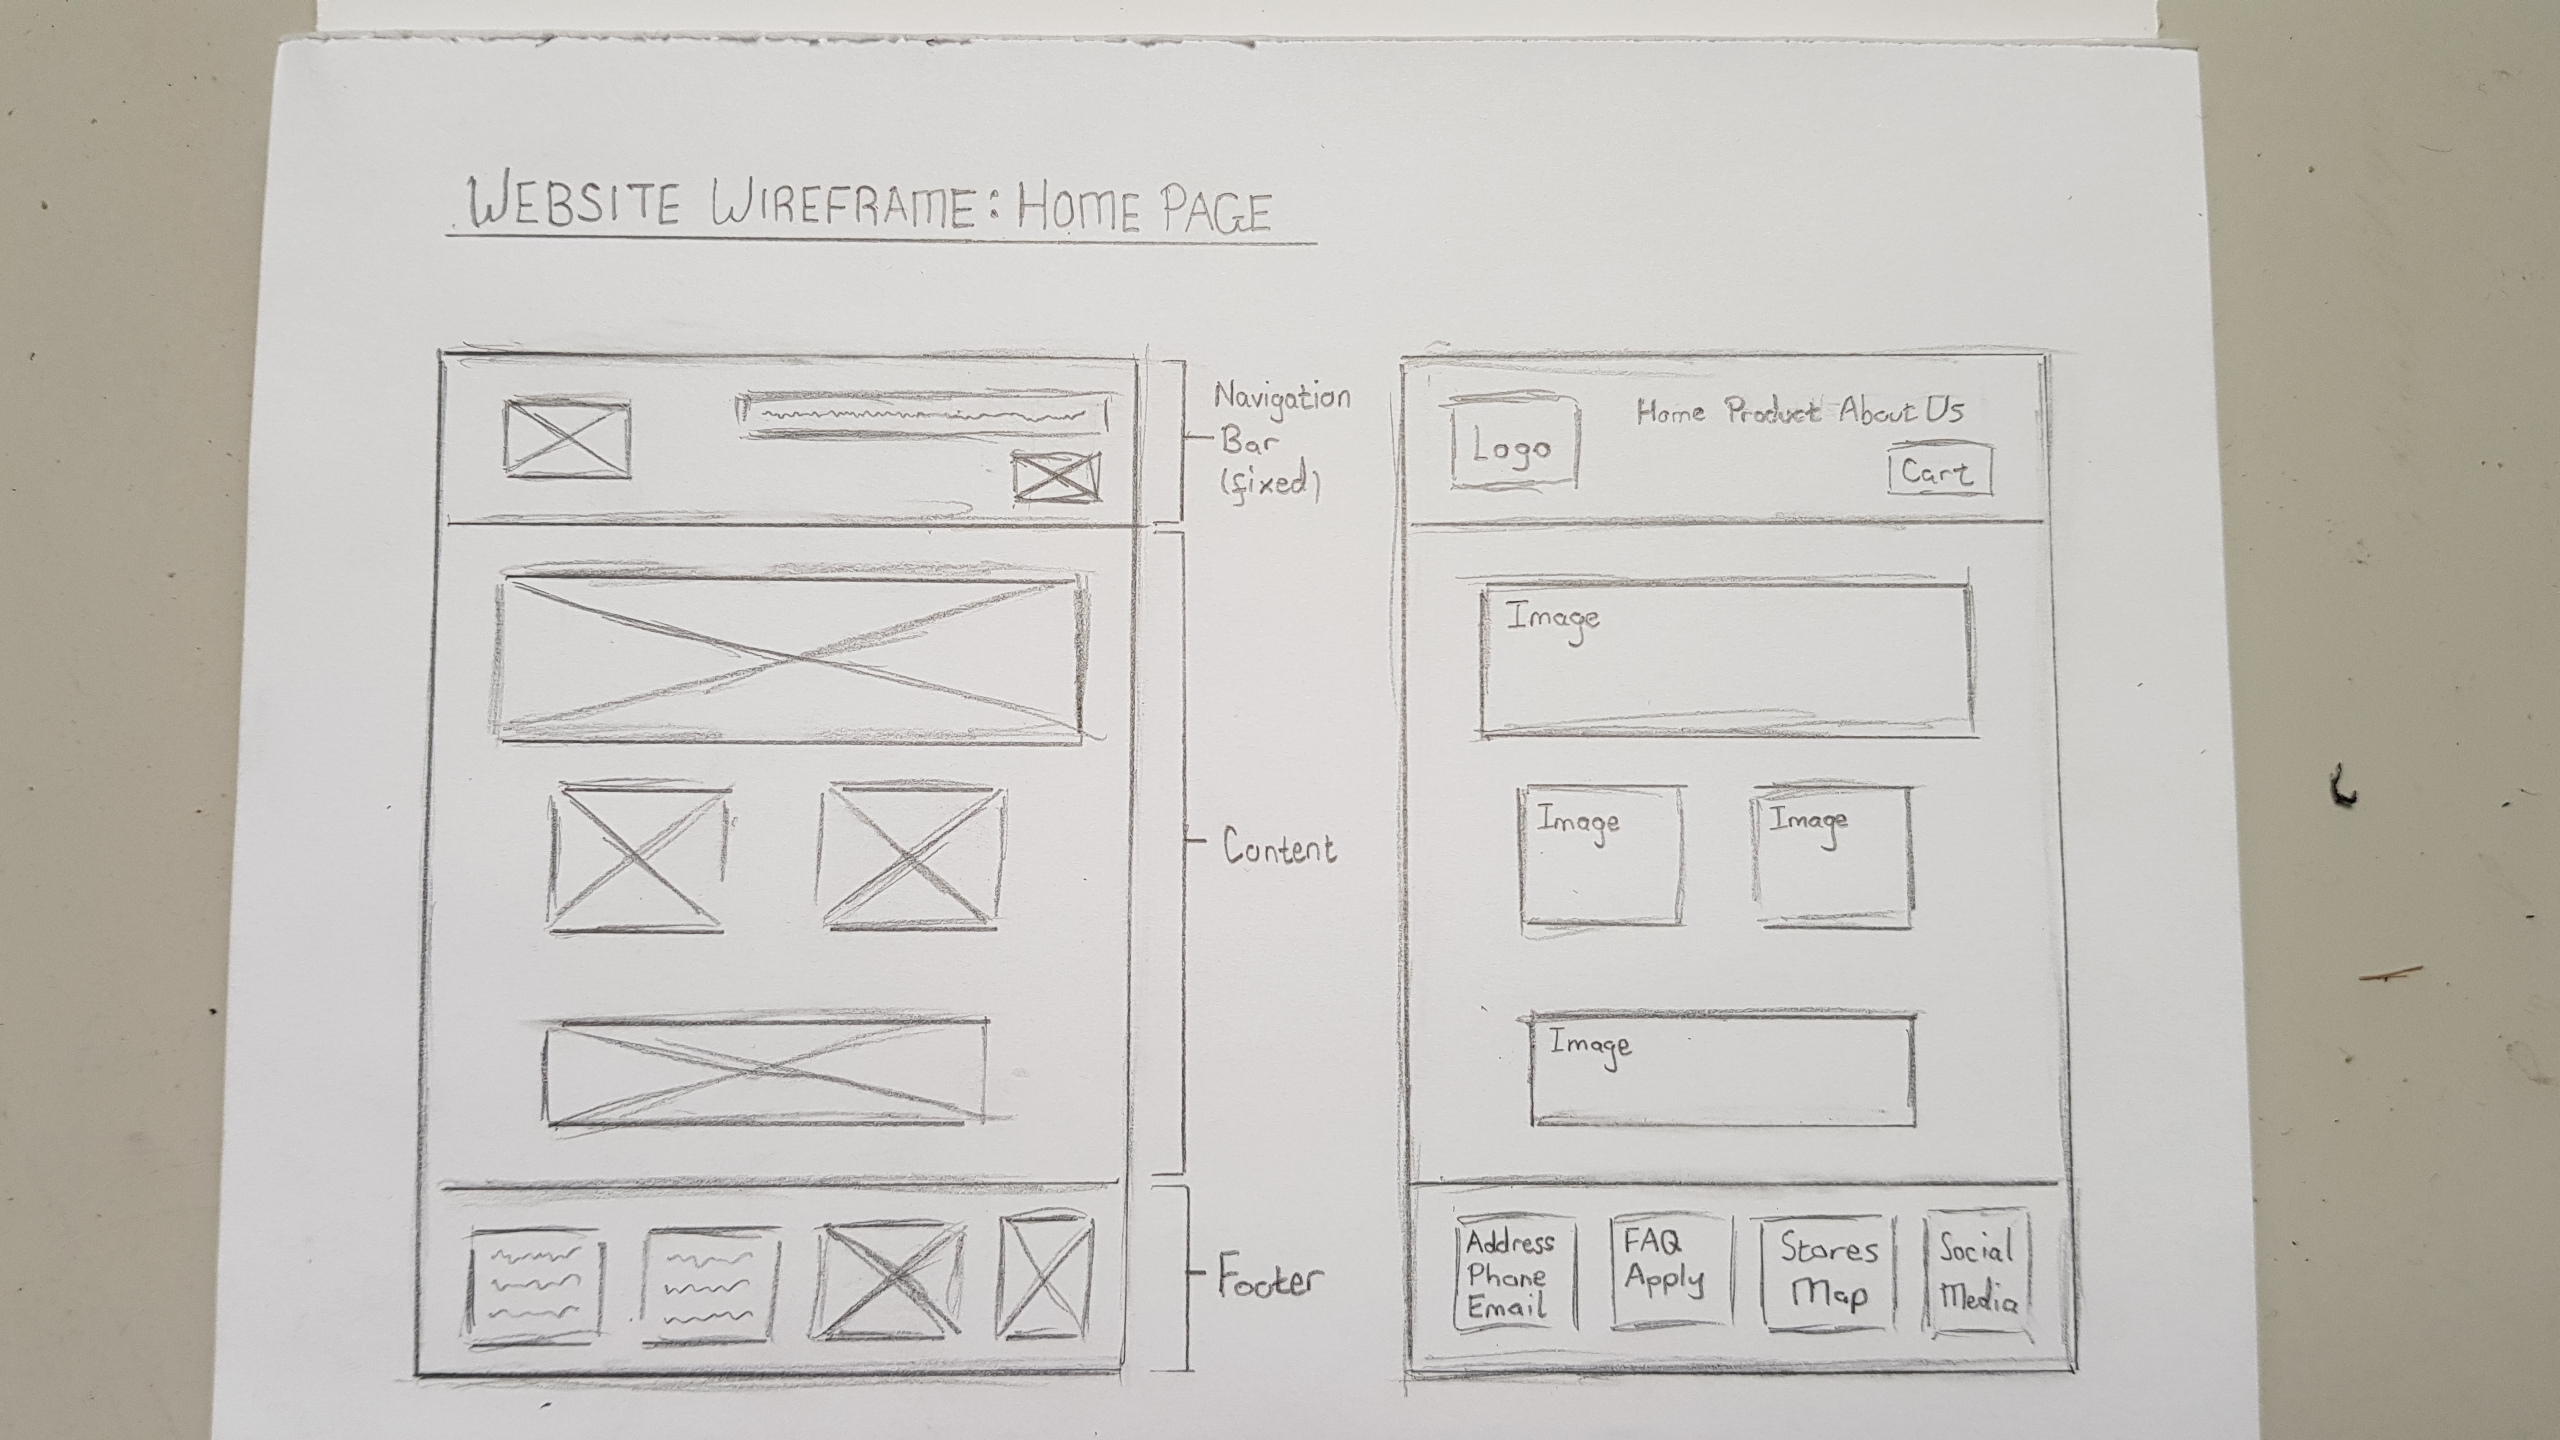 WEBSITE WIREFRAME: HOME PAGE
Navigation
Bar
(fixed)
Content
Footer
Logo
Home Product About Us
Cart
Image
Image
Image
Image
Address
Phone
Email
FAQ
Apply
Stores
Map
Social
Media